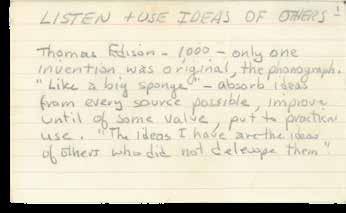 LISTEN + USE IDEAS OF OTHERS 1
Thomas Edison - 1000 - only one
invention was original, the phonograph.
"Like a big sponge" - absorb ideas
from every source possible, improve
until of some value, put to practical
use. "The ideas I have are the ideas
of others who did not delevope them".